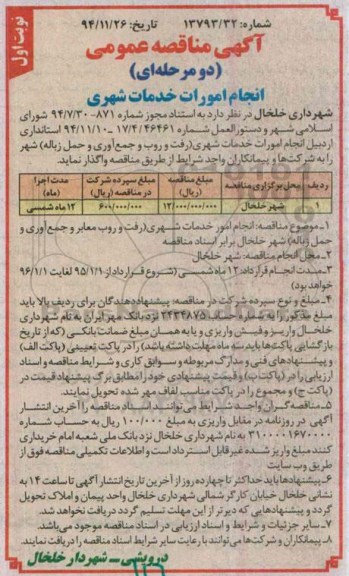 نوبت اول
شماره: ۱۳۷۹۳/۳۲ تاریخ: ۹۴/۱۱/۲۶
آگهی مناقصه عمومی
(دو مرحله‌ای)
انجام امورات خدمات شهری
شهرداری خلخال در نظر دارد به استناد مجوز شماره ۸۷۱-۹۴/۷/۳۰ شورای
اسلامی شهر و دستورالعمل شماره ۱۷/۴/۴۶۴۶۱-۹۴/۱۱/۱۰ استانداری
اردبیل انجام امورات خدمات شهری (رفت و روب و جمع‌آوری و حمل زباله) شهر
را به شرکت‌ها و پیمانکاران واجد شرایط از طریق مناقصه واگذار نماید.
ردیف محل برگزاری مناقصه مبلغ مناقصه (ریال) مبلغ سپرده شرکت در مناقصه (ریال) مدت اجرا (ماه)
۱ شهر خلخال ۱۲/۰۰۰/۰۰۰/۰۰۰ ۶۰۰/۰۰۰/۰۰۰ ۱۲ ماه شمسی
۱ـ موضوع مناقصه: انجام امور خدمات شهری (رفت و روب معابر و جمع‌آوری و
حمل زباله) شهر خلخال برابر اسناد مناقصه
۲ـ محل انجام مناقصه: شهر خلخال
۳ـ مدت انجام قرارداد: ۱۲ ماه شمسی (شروع قرارداد از ۹۵/۱/۱ لغایت ۹۶/۱/۱
خواهد بود)
۴ـ مبلغ و نوع سپرده شرکت در مناقصه: پیشنهاددهندگان برای ردیف بالا باید
مبلغ مذکور را به شماره حساب ۲۴۳۴۸۷۵ نزد بانک مهر ایران به نام شهرداری
خلخال واریز و فیش واریزی و یا به همان مبلغ ضمانت بانکی (که از تاریخ
بازگشایی پاکت‌ها باید سه ماه مهلت داشته باشد) را در پاکت تضمینی (پاکت الف)
و پیشنهادهای فنی و مدارک مربوطه و سوابق کاری و شرایط مناقصه و اسناد
ارزیابی را در (پاکت ب) و قیمت پیشنهادی خود را مطابق برگ پیشنهاد قیمت در
(پاکت ج) و مجموع را در پاکت مناسب لفاف مهر شده تحویل نمایند.
۵ـ مناقصه‌گران واجد شرایط می‌توانند اسناد مناقصه را از آخرین انتشار
آگهی در روزنامه در مقابل واریزی به مبلغ ۱۰۰/۰۰۰ ریال به حساب شماره
۳۱۰۰۰۰۱۶۷۰۰۰۰ به نام شهرداری خلخال نزد بانک ملی شعبه امام خریداری
کنند مبلغ واریز شده غیر قابل استرداد است و اطلاعات تکمیلی مناقصه فوق از
طریق وب سایت
۶ـ پیشنهادها باید حداکثر تا چهارده روز از آخرین تاریخ انتشار آگهی تا ساعت ۱۴ به
نشانی خلخال خیابان کارگر شمالی شهرداری خلخال واحد پیمان و املاک تحویل
گردد و پیشنهادهایی که دیرتر از این مهلت تسلیم گردد دریافت نخواهد شد.
۷ـ سایر جزئیات و شرایط و اسناد ارزیابی در اسناد مناقصه موجود می‌باشد.
۸ـ پیمانکاران و شرکت‌ها می‌توانند با رعایت سایر شرایط اسناد مناقصه را دریافت نمایند.
درویشی ـ شهردار خلخال